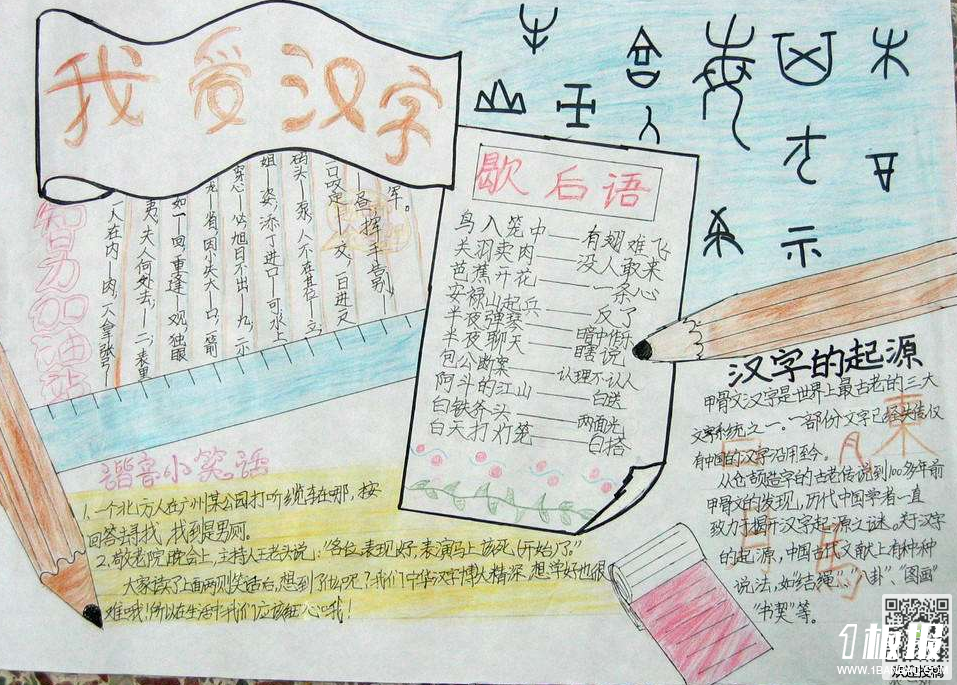 我爱汉字
智力加油站
军。
一昼，挥手告别，一
一口咬定——交，一百进叉
码头——泵，人不在其位——立，
姐——姿，添丁进口——可，水上
穿心——必，旭日不出——九，二小
龙——省，因小失大——口，一箭
如一——回，重逢——观，独眼
夷，夫人何处去，——二，表里
一人在内——肉，一人拿张弓——
歇后语
鸟入笼中——有翅难飞
关羽卖肉——没人敢来
芭蕉开花——一条心
安禄山起兵——反了
半夜弹琴——暗中作乐
半夜聊天——瞎说
包公断案——认理不认人
阿斗的江山——白送
白铁斧头——两面光
白天打灯笼——白搭
谐音小笑话
1、一个北方人在广州某公园打听缆车在哪，按
回答去寻找，找到是男厕。
2、敬老院晚会上，主持人王老头说：“各位，表现好，表演马上该死(开始)了。”
大家读了上面两则笑话后，想到了什么呢？我们中华汉字博大精深，想学好也很
难哦！所以在生活中我们应该细心哦！
汉字的起源
甲骨文汉字是世界上最古老的三大
文字系统之一。一部份文字已经失传，仅
有中国的汉字沿用至今。
从仓颉造字的古老传说到100多年前
甲骨文的发现，历代中国学者一直
致力于揭开汉字起源之谜。关于汉字
的起源，中国古代文献上有种种
说法，如“结绳”、“八卦”、“图画”、
“书契”等。
1板报
WWW.1BANBAO.COM
欢迎投稿